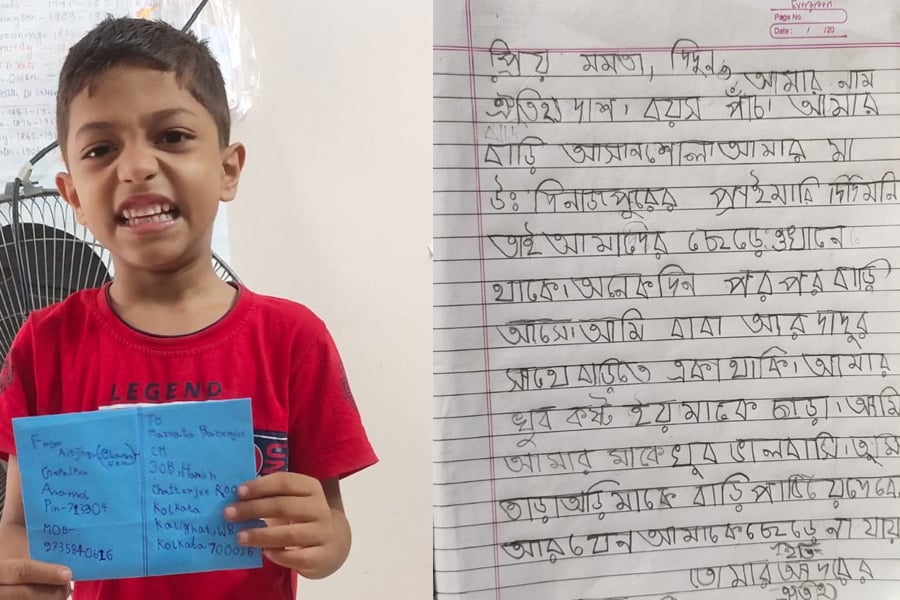 LEGEND
From
To
Mamata Banerjee
CM
30B, Harish
Chatterjee Road
Kolkata
Kalighat, WB
Kolkata 700026
Gopalpur
Asansol
Pin-713304
MOB-
9735840616
Evergreen
Page No.
Date: / /20
প্রিয় মমতা, দিদুন
আমার নাম
ঐতিহ্য দাশ। বয়স পাঁচ। আমার
বাড়ি আসানশোল। আমার মা
উঃ দিনাজপুরের প্রাইমারি দিদিমনি
তাই আমাদের ছেড়ে ওখানে
থাকে। অনেকদিন পর পর বাড়ী
আসে। আমি বাবা আর দাদুর
সাথে বাড়িতে একা থাকি। আমার
খুব কষ্ট হয় মাকে ছাড়া। আমি
আমার মাকে খুব ভালবাসি। তুমি
তাড়াতাড়ি মাকে বাড়ি পাঠিয়ে দেবে
আর যেন আমাকে ছেড়ে না যায়
ইতি-
তোমার আদরের
ঐতিহ্য